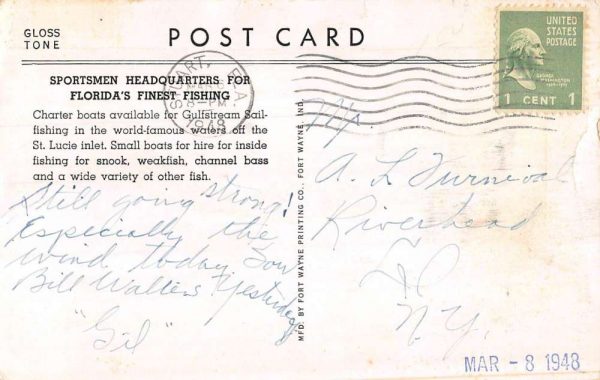 GLOSS
TONE
POST CARD
UNITED
STATES
POSTAGE
GEORGE
WASHINGTON
1 CENT 1
STUART, FLA.
PM
1948
SPORTSMEN HEADQUARTERS FOR
FLORIDA'S FINEST FISHING
Charter boats available for Gulfstream Sail-
fishing in the world-famous waters off the
St. Lucie inlet. Small boats for hire for inside
fishing for snook, weakfish, channel bass
and a wide variety of other fish.
Still going strong!
Especially the
wind today. Sow
Bill Walters Yesterday
"Gil"
MFD. BY FORT WAYNE PRINTING CO., FORT WAYNE, IND.
A L Furnival
Riverhead
N.Y.
MAR - 8 1948